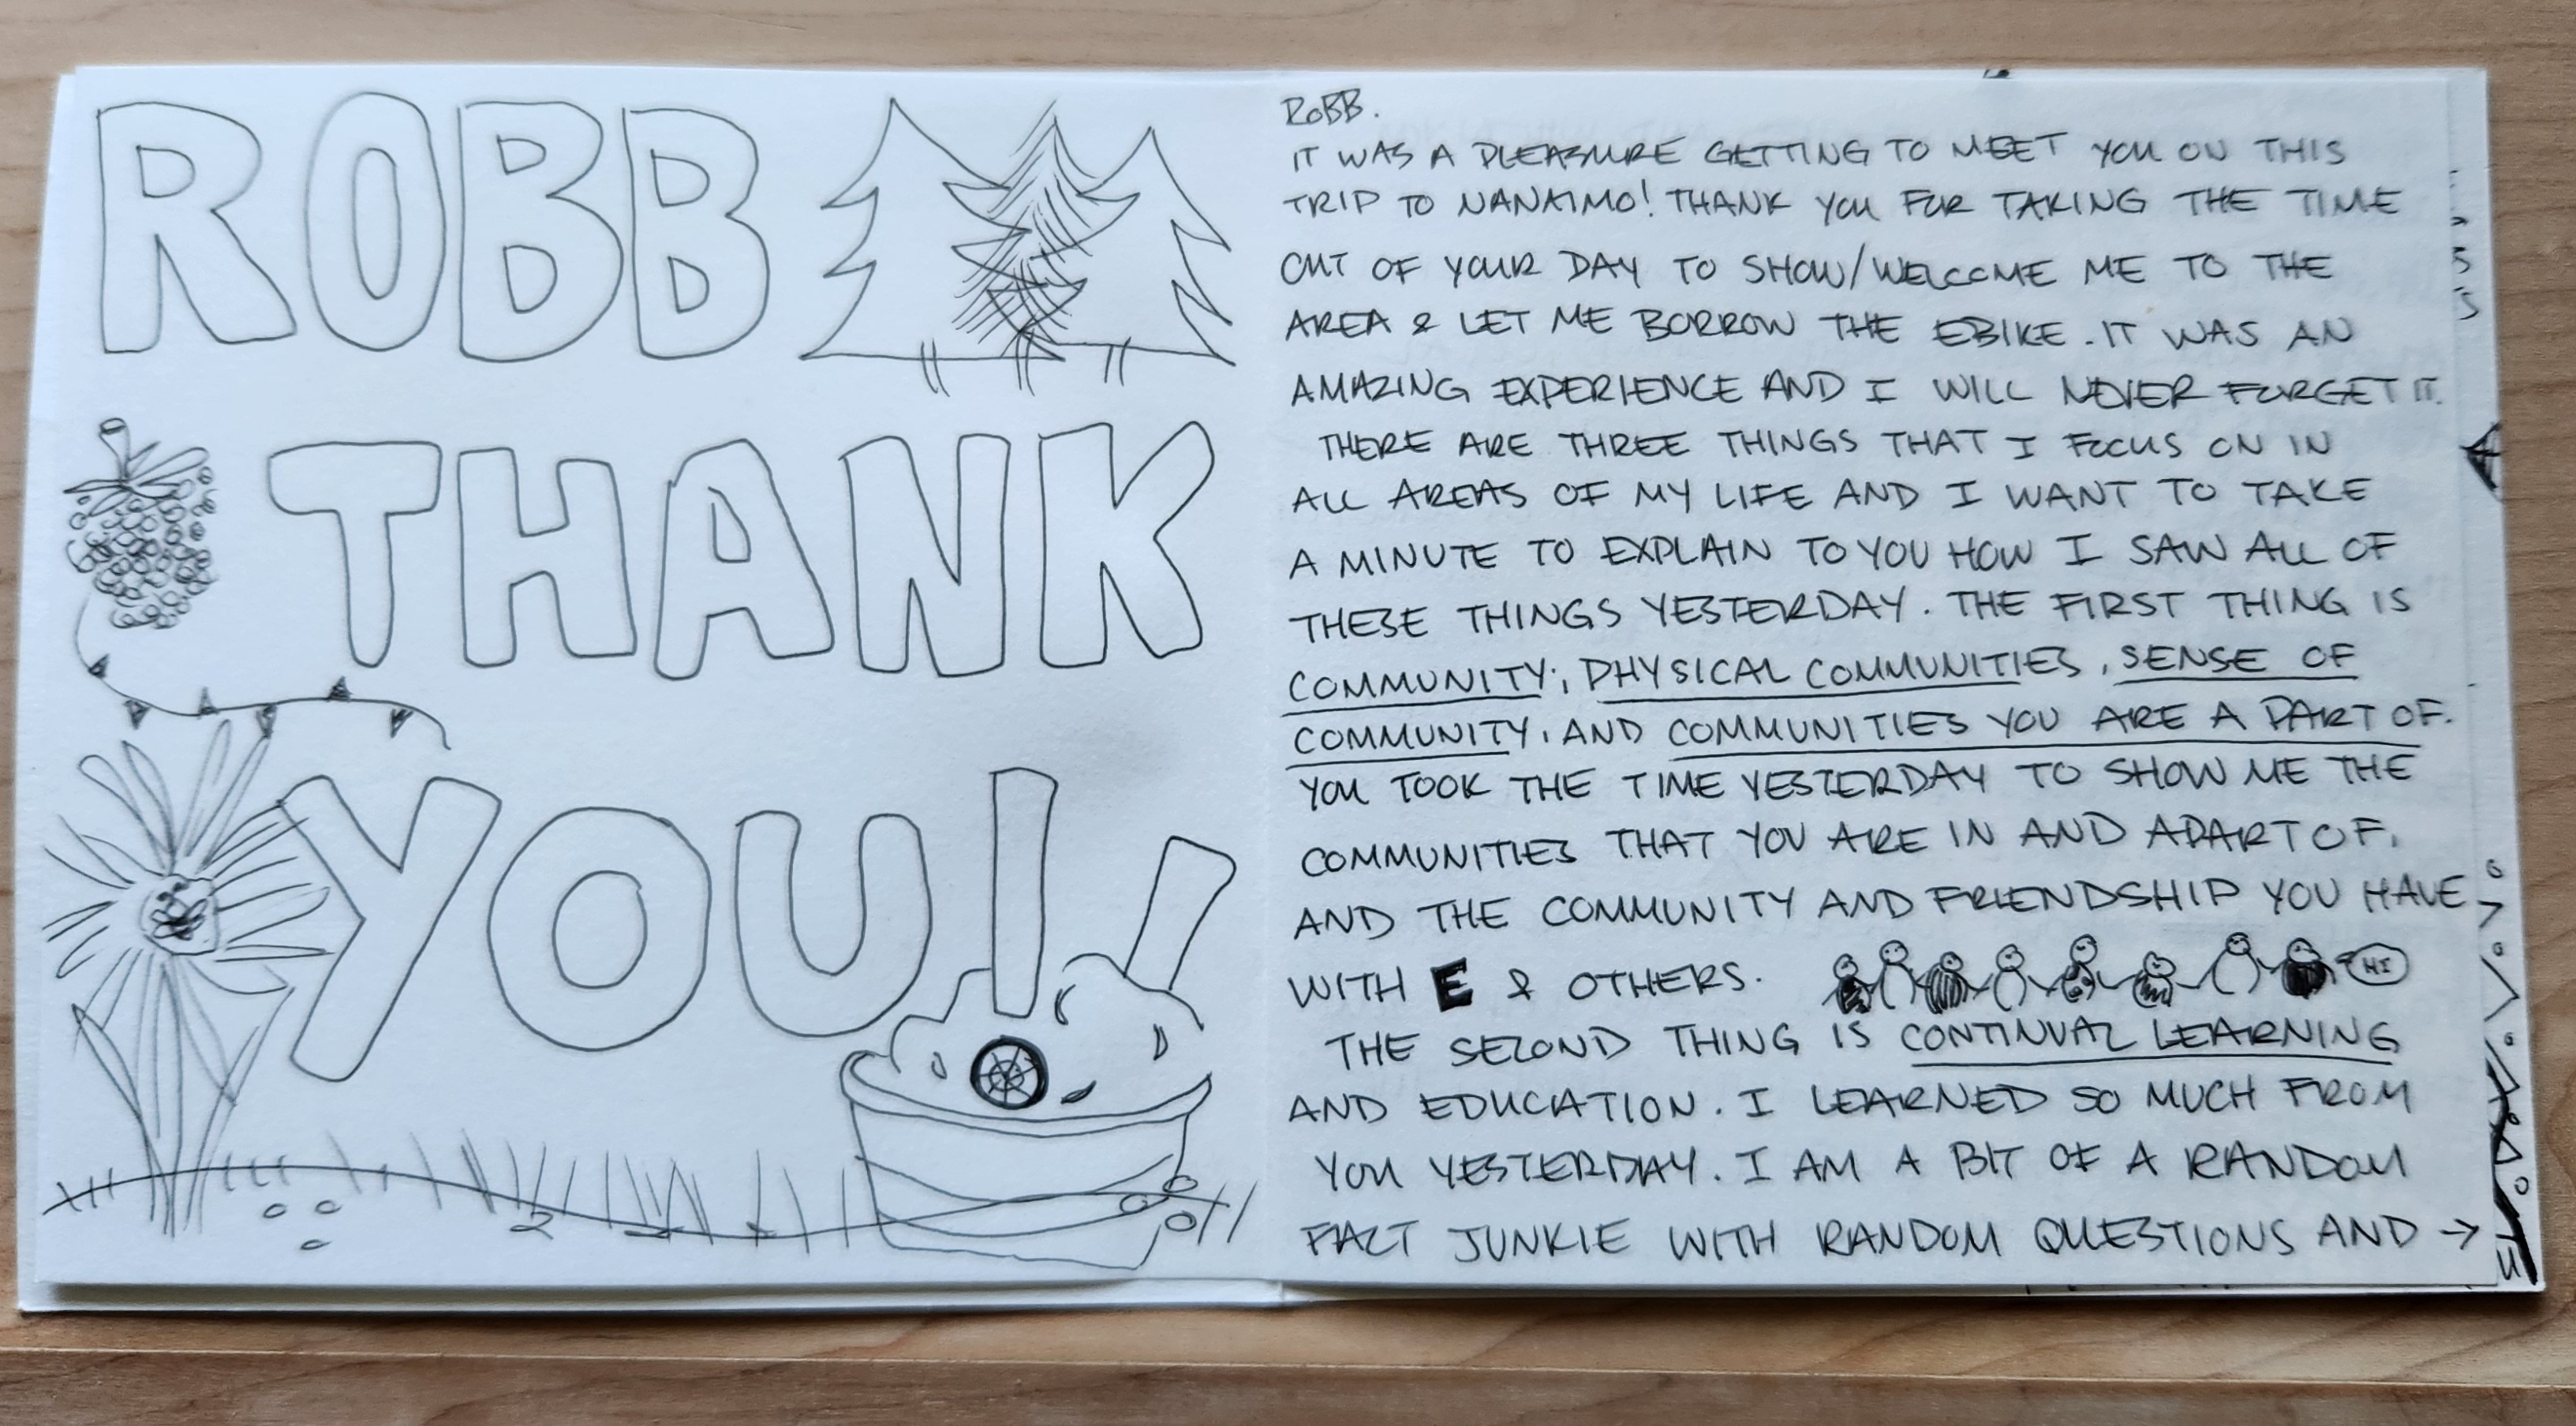 ROBB
THANK
YOU!
ROBB.
IT WAS A PLEASURE GETTING TO MEET YOU ON THIS
TRIP TO NANAIMO! THANK YOU FOR TAKING THE TIME
OUT OF YOUR DAY TO SHOW/WELCOME ME TO THE
AREA & LET ME BORROW THE EBIKE. IT WAS AN
AMAZING EXPERIENCE AND I WILL NEVER FORGET IT.
THERE ARE THREE THINGS THAT I FOCUS ON IN
ALL AREAS OF MY LIFE AND I WANT TO TAKE
A MINUTE TO EXPLAIN TO YOU HOW I SAW ALL OF
THESE THINGS YESTERDAY. THE FIRST THING IS
COMMUNITY; PHYSICAL COMMUNITIES, SENSE OF
COMMUNITY, AND COMMUNITIES YOU ARE A PART OF.
YOU TOOK THE TIME YESTERDAY TO SHOW ME THE
COMMUNITIES THAT YOU ARE IN AND APART OF,
AND THE COMMUNITY AND FRIENDSHIP YOU HAVE
WITH E & OTHERS. HI
THE SECOND THING IS CONTINUAL LEARNING
AND EDUCATION. I LEARNED SO MUCH FROM
YOU YESTERDAY. I AM A BIT OF A RANDOM
FACT JUNKIE WITH RANDOM QUESTIONS AND →